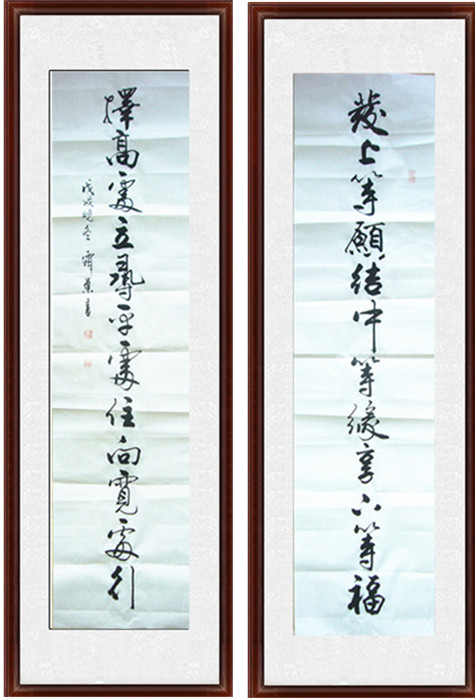 發上等願結中等緣享下等福
擇高處立尋平處住向寬處行
戊戌晚冬